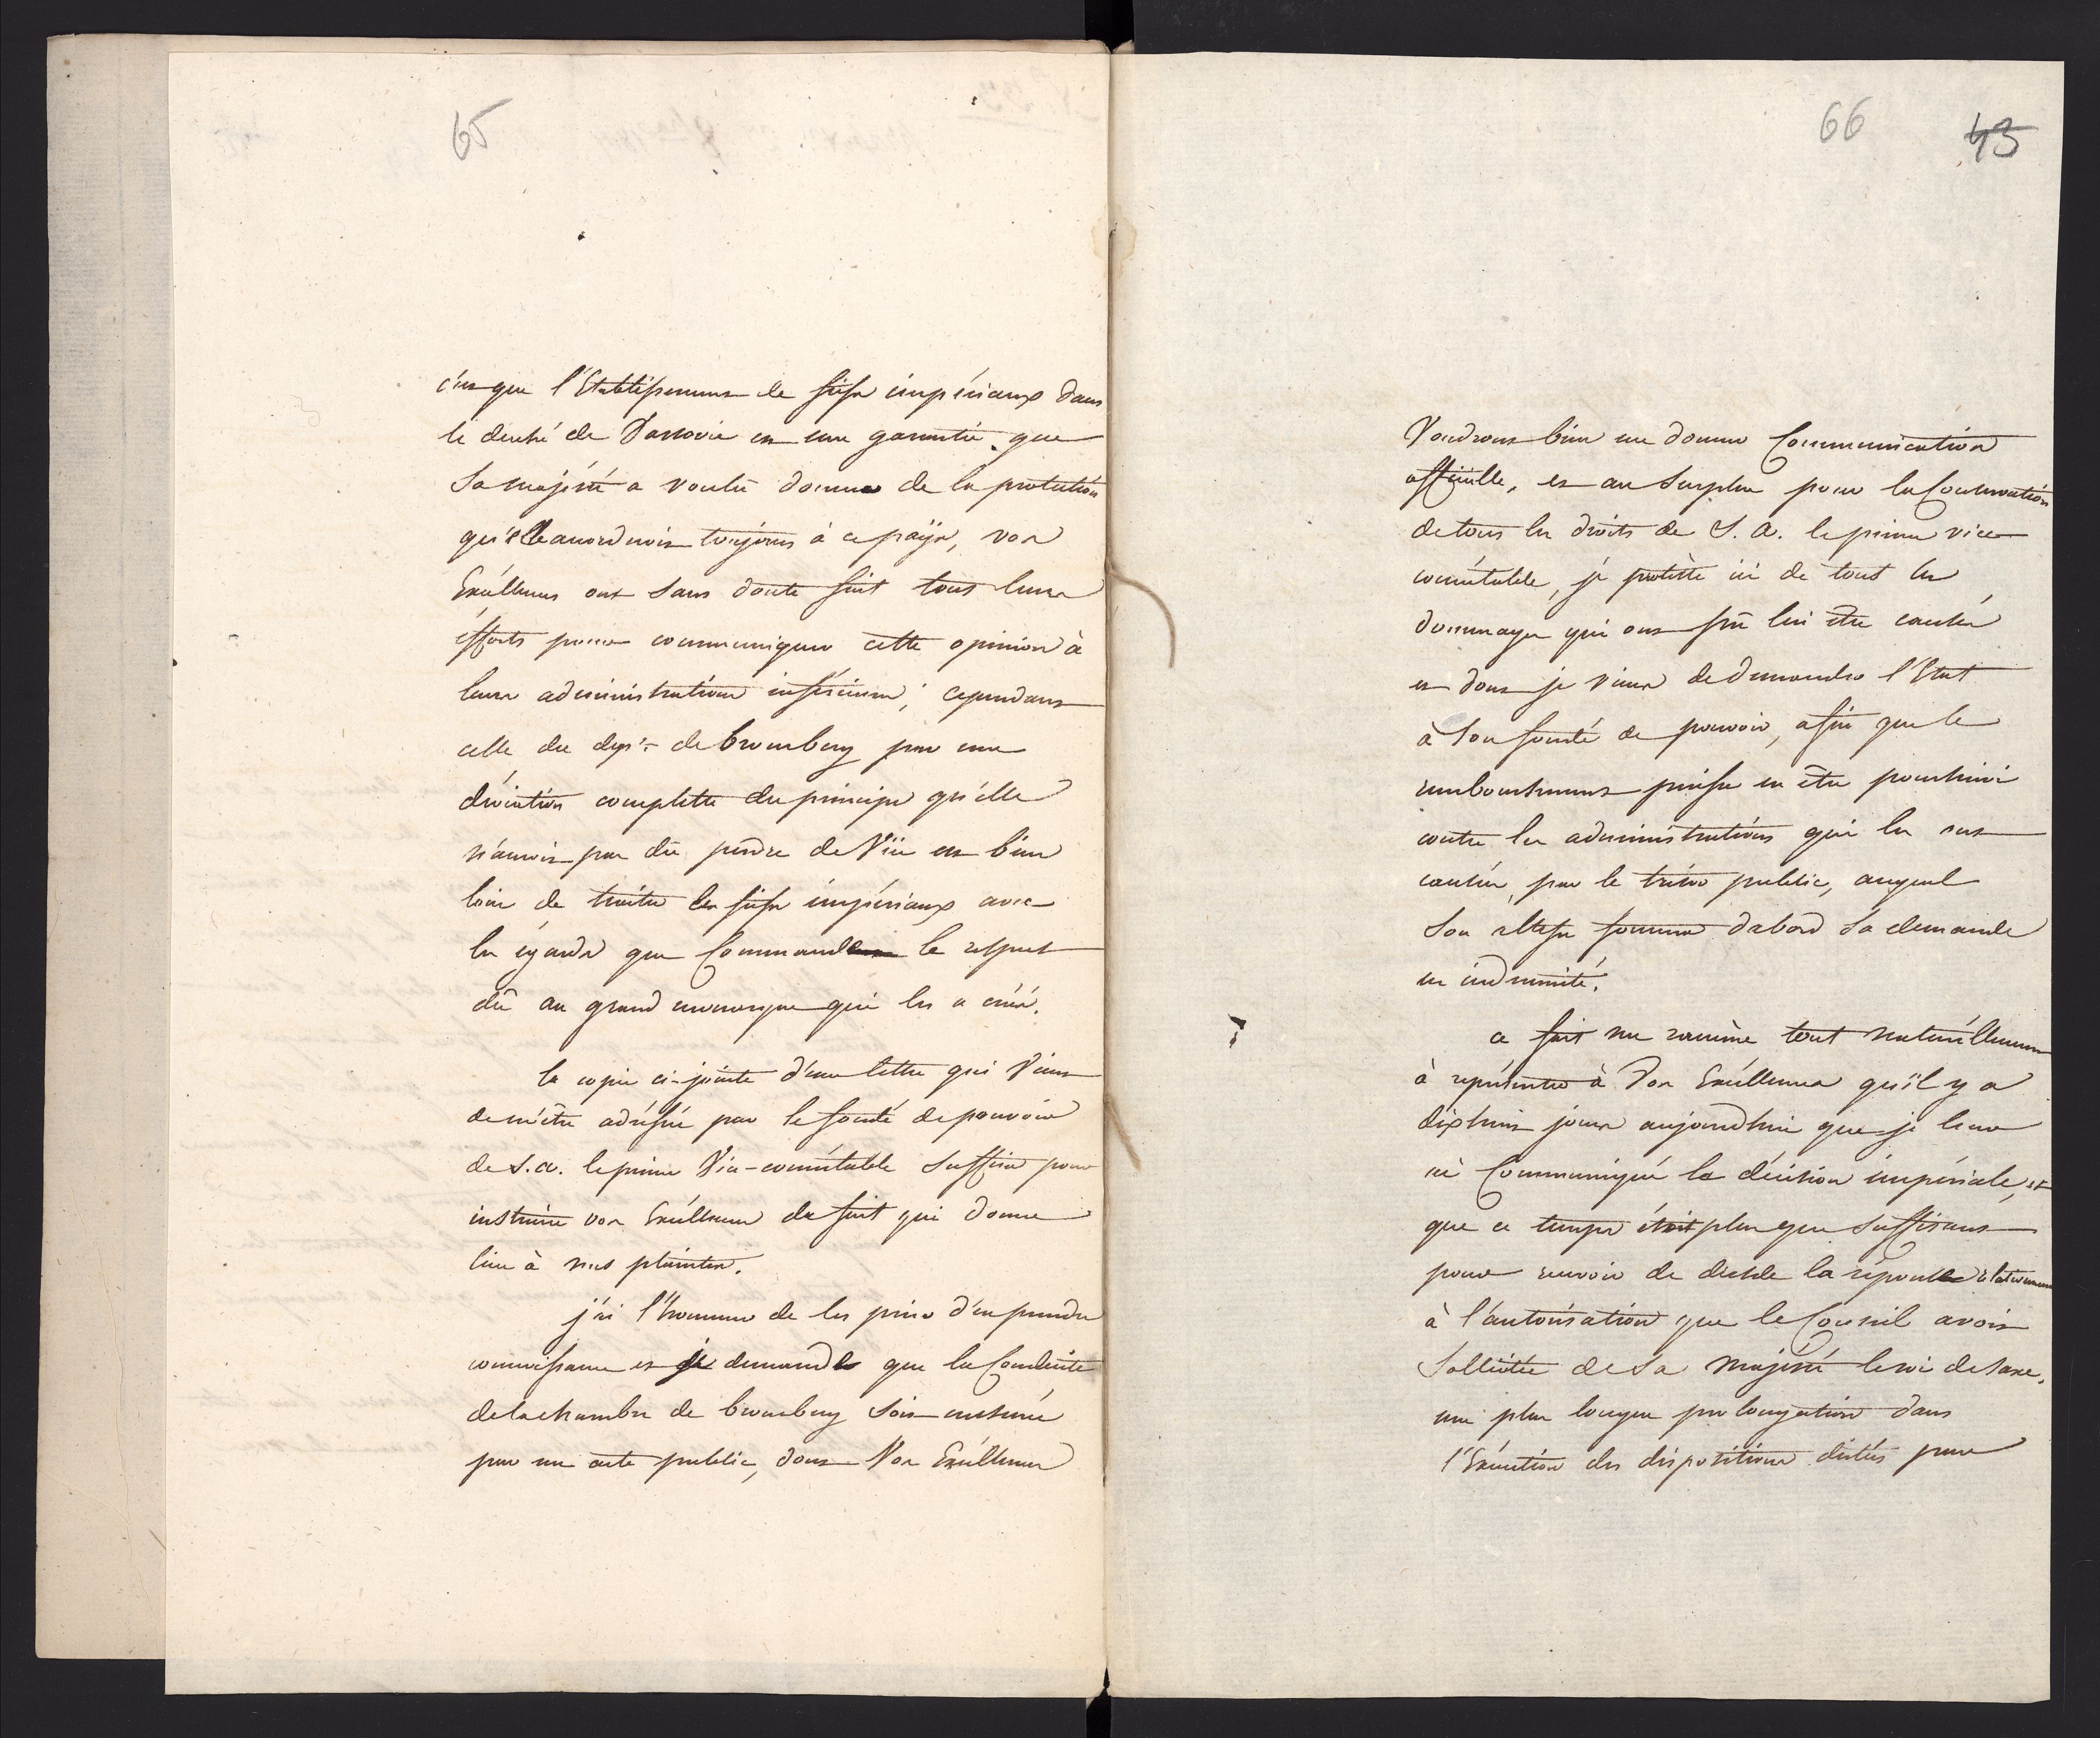 65
c'est que l'Etablissement de fiefs impériaux dans
le duché de Varsovie est une garantie que
Sa majesté a voulu donner de la protection
qu'elle accorderoit toujours à ce païs, vos
Excellences ont sans doute fait tous leurs
éfforts pour communiquer cette opinion à
leurs administrations inférieures; cependant
celle du dep.t de bromberg par une
déviation complette du principe qu'elle
n'auroit pas dû perdre de Vüe est bien
loin de traiter les fiefs impériaux avec
les égards que Commande le respect
dû au grand monarque qui les a créé.
la copie ci-jointe d'une lettre qui Vient
de m'être adréssée par le fondé de pouvoir
de S. a. le prince Vice-connétable Suffira pour
instruire vos Excéllences du fait qui donne
lieu à mes plaintes.
j'ai l'honneur de les prier d'en prendre
connoissance et je demande que la Conduite
de la chambre de bromberg Soit censurée
par un acte public, dont Vos Excéllences
66 43
Voudront bien me donner Communication
officielle, et au Surplus pour la Conservation
de tous les droits de S. A. le prince vice
connétable, je protèste ici de tout les
dommages qui ont pû lui être causés
et dont je viens de demander l'Etat
à Son fondé de pouvoir, afin que le
remboursement puisse en être poursuivi
contre les administrations qui les ont
causés, par le trésor public, auquel
Son altesse formera dabord Sa demande
en indemnité.
ce fait me ramène tout naturéllement
à représenter à Vos Excéllences qu'il y a
dixhuit jours aujourdhui que je leur
ai Communiqué la décision impériale, et
que ce temps étoit plus que Suffisant
pour recevoir de dresde la réponse relativement
à l'autorisation que le Conseil avoit
Sollicitée de Sa Majesté le roi de Saxe.
une plus longue prolongation dans
l'Exécution des dispositions dictées par